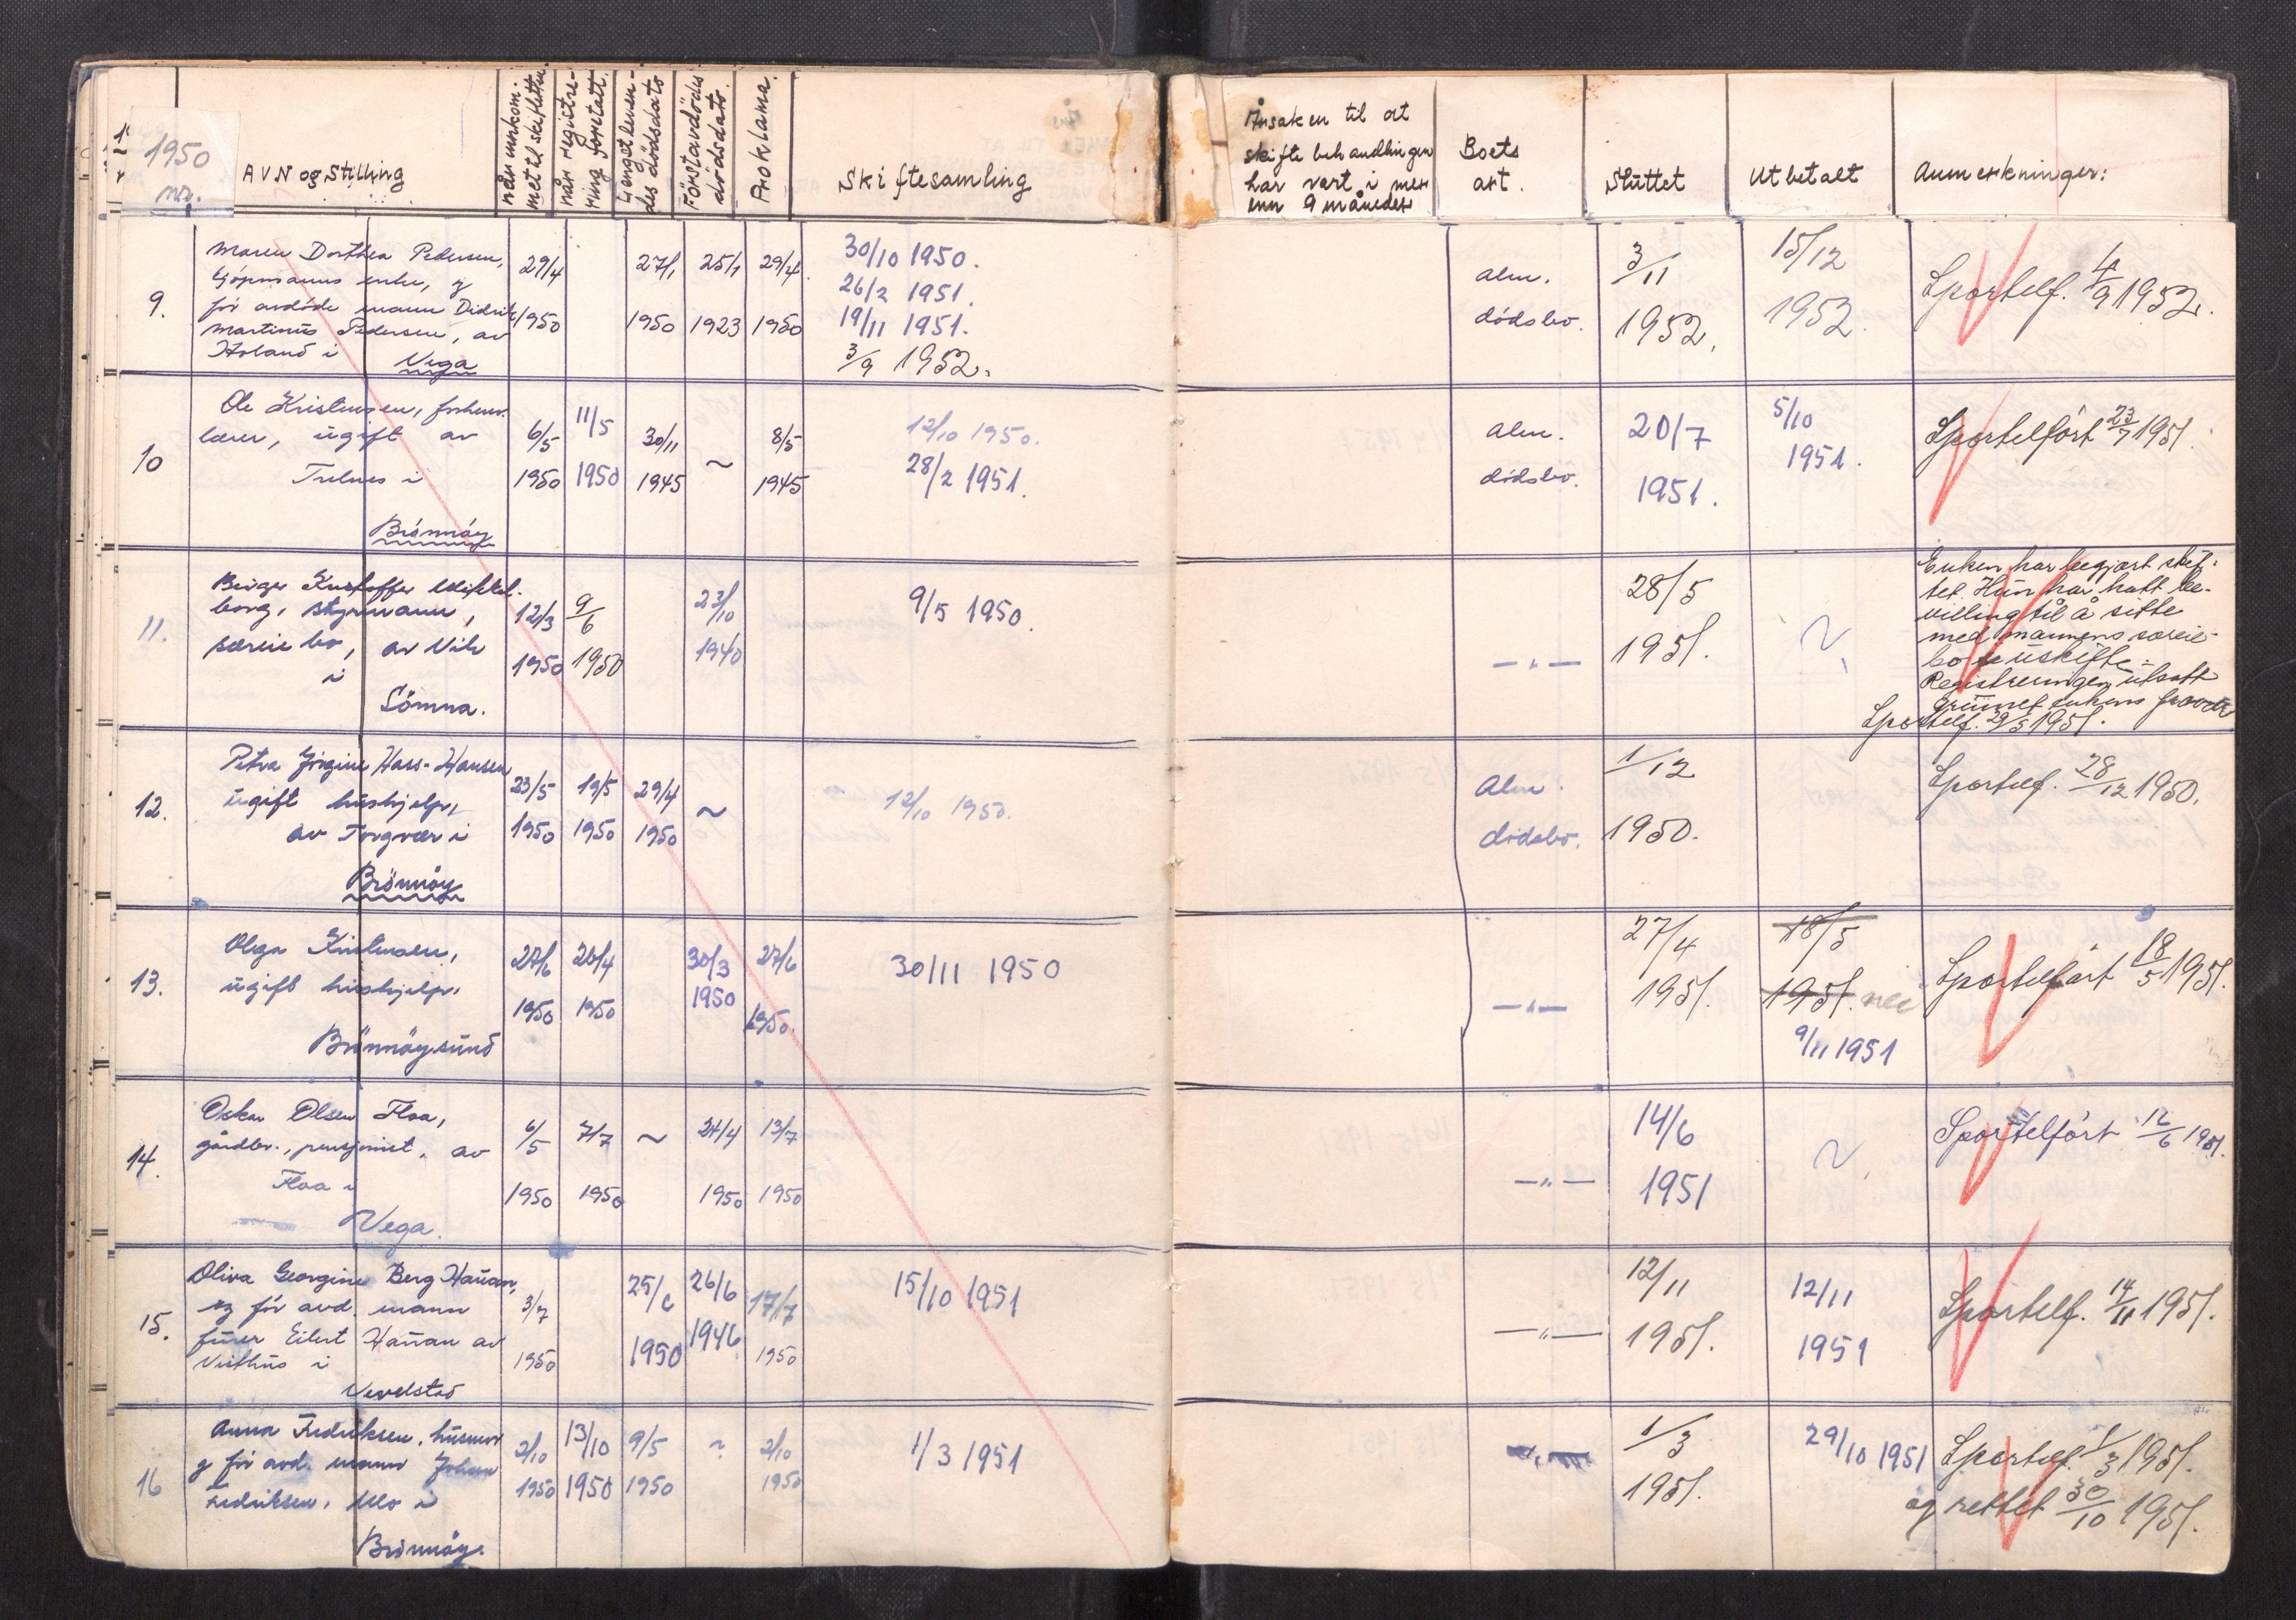 1950
nr.
AVN og Stilling
når innkom-
met til skifteretten
når registre-
ring foretatt.
Lengstleven-
des dødsdato
Förstavdødes
dødsdato.
Proklama.
Skiftesamling
Årsaken til at
skiftebehandlingen
har vart i mer
enn 9 måneder
Boets
art.
Sluttet
Utbetalt
Anmerkninger:
9.
Maren Dorthea Pedersen,
enke, og
for avdøde mann Didrik
Martinus Pedersen, av
Holand i
Vega
29/4
1950
27/1
1950
25/1
1923
29/4
1950
30/10 1950.
26/2 1951.
19/11 1951.
3/9 1952.
Alm.
dödsbo.
3/11
1952.
15/12
1952.
Sportelf. 4/9 1952.
10
Ole Kristensen, forhenv.
lærer, ugift av
Trelnes i
Brönnöy
6/5
1950
11/5
1950
30/11
1945
~
8/5
1945
12/10 1950.
28/2 1951.
Alm.
dödsbo.
20/7
1951.
5/10
1951.
Sportelfört 23/7 1951.
11.
Birger Kristoffer
borg, styrmann,
særeiebo, av Vik
i
Sömna.
12/3
1950
9/6
1950
23/10
1940
9/5 1950.
—„—
28/5
1951.
~
Enken har begjært skif-
tet. Hun har hatt be-
villing til å sitte
med mannens særeie-
bo i uskifte.
Registreringen utsatt
grunnet enkens fravær
Sportelf. 29/5 1951.
12.
Petra Jörgine Hass-Hansen
ugift hushjelp,
av Torgvær i
Brönnöy
23/5
1950
19/5
1950
29/4
1950
~
12/10 1950.
Alm.
dödsbo.
1/12
1950.
Sportelf. 28/12 1950.
13.
Olga Kristensen,
ugift hushjelp.
Brönnöysund
27/6
1950
26/4
1950
30/3
1950
27/6
1950.
30/11 1950
—„—
27/4
1951.
18/5
1951. nei
9/11 1951
Sportelfört 18/5 1951.
14.
Oskar Olsen Floa,
gårdbr., pensjonist, av
Floa i
Vega.
6/5
1950
7/7
1950
~
24/4
1950
13/7
1950
—„—
14/6
1951
~
Sportelfört 16/6 1951.
15.
Oliva Georgine Berg Hauan,
og for avd. mann
Eilert Hauan av
Visthus i
Vevelstad
3/7
1950
25/6
1950
26/6
1946
17/7
1950
15/10 1951
—„—
12/11
1951.
12/11
1951
Sportelf. 14/11 1951.
16
Anna Fredriksen, husmor
og for avd. mann Johan
Fredriksen, Mo i
Brönnöy.
2/10
1950
13/10
1950
9/5
1950
~
2/10
1950
1/3 1951
1/3
1951.
29/10 1951
Sportelf. 1/3 1951.
og rettet 30/10 1951.